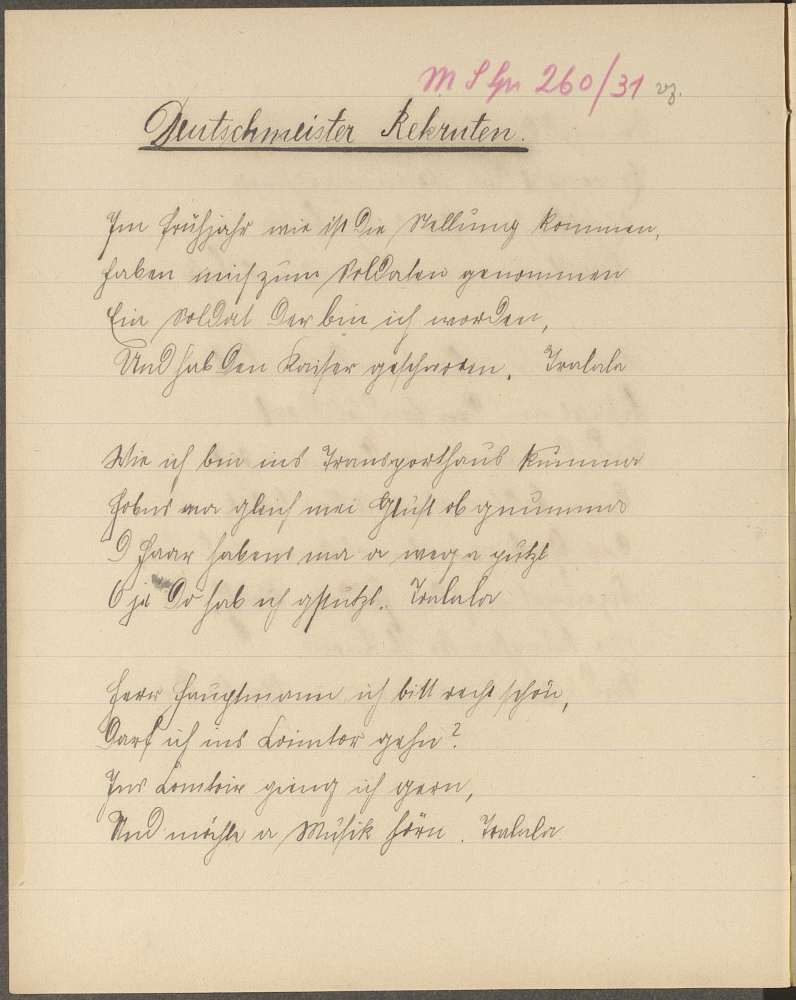 260/31
Deutschmeister Rekruten.
Im Frühjahr wie ist die Stellung kommen,
haben mich zum Soldaten genommen
Ein Soldat der bin ich worden,
Und hab den Kaiser geschworen. Tralala
Wie ich bin ins Transporthaus kumma
Hobns ma gleich mei Gluft ob gnumma
D Haar habens ma a weg a putzt
O je do hab ich gstutzt. Tralala
Herr Hauptmann ich bitt recht schön,
Darf ich ins gehn?
Ins gieng ich gern,
Und möchte a Musik hörn. Tralala